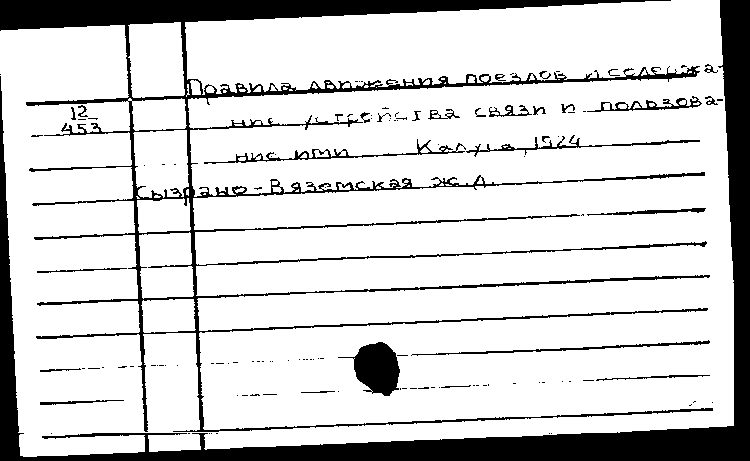 Правила движения поездов и содержа-
12/453
ние устройства связи и пользова-
ние ими Калуга, 1924
Сызрано-Вяземская ж.д.